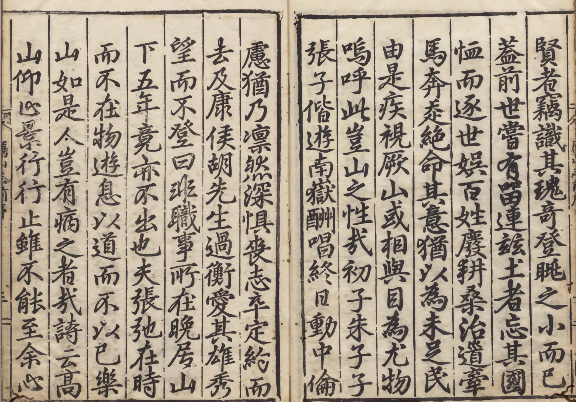 賢者竊識其瑰奇登眺之小而已
蓋前世嘗有留連玆土者忘其國
恤而逐世娛百姓廢耕桑治道牽
馬奔忝絶命其意猶以為未足民
由是疾視厥山或相與目為尤物
嗚呼此豈山之性㢤初子朱子子
張子偕遊南嶽酬唱終日動中倫
慮猶乃凜然深懼喪志卒定約而
去及康侯胡先生過衡愛其雄秀
望而不登曰非職事所在晚居山
下五年竟亦不出也夫張弛在時
而不在物遊息以道而不以已樂
山如是人豈有病之者㢤詩云高
山仰止景行行止雖不能至余心